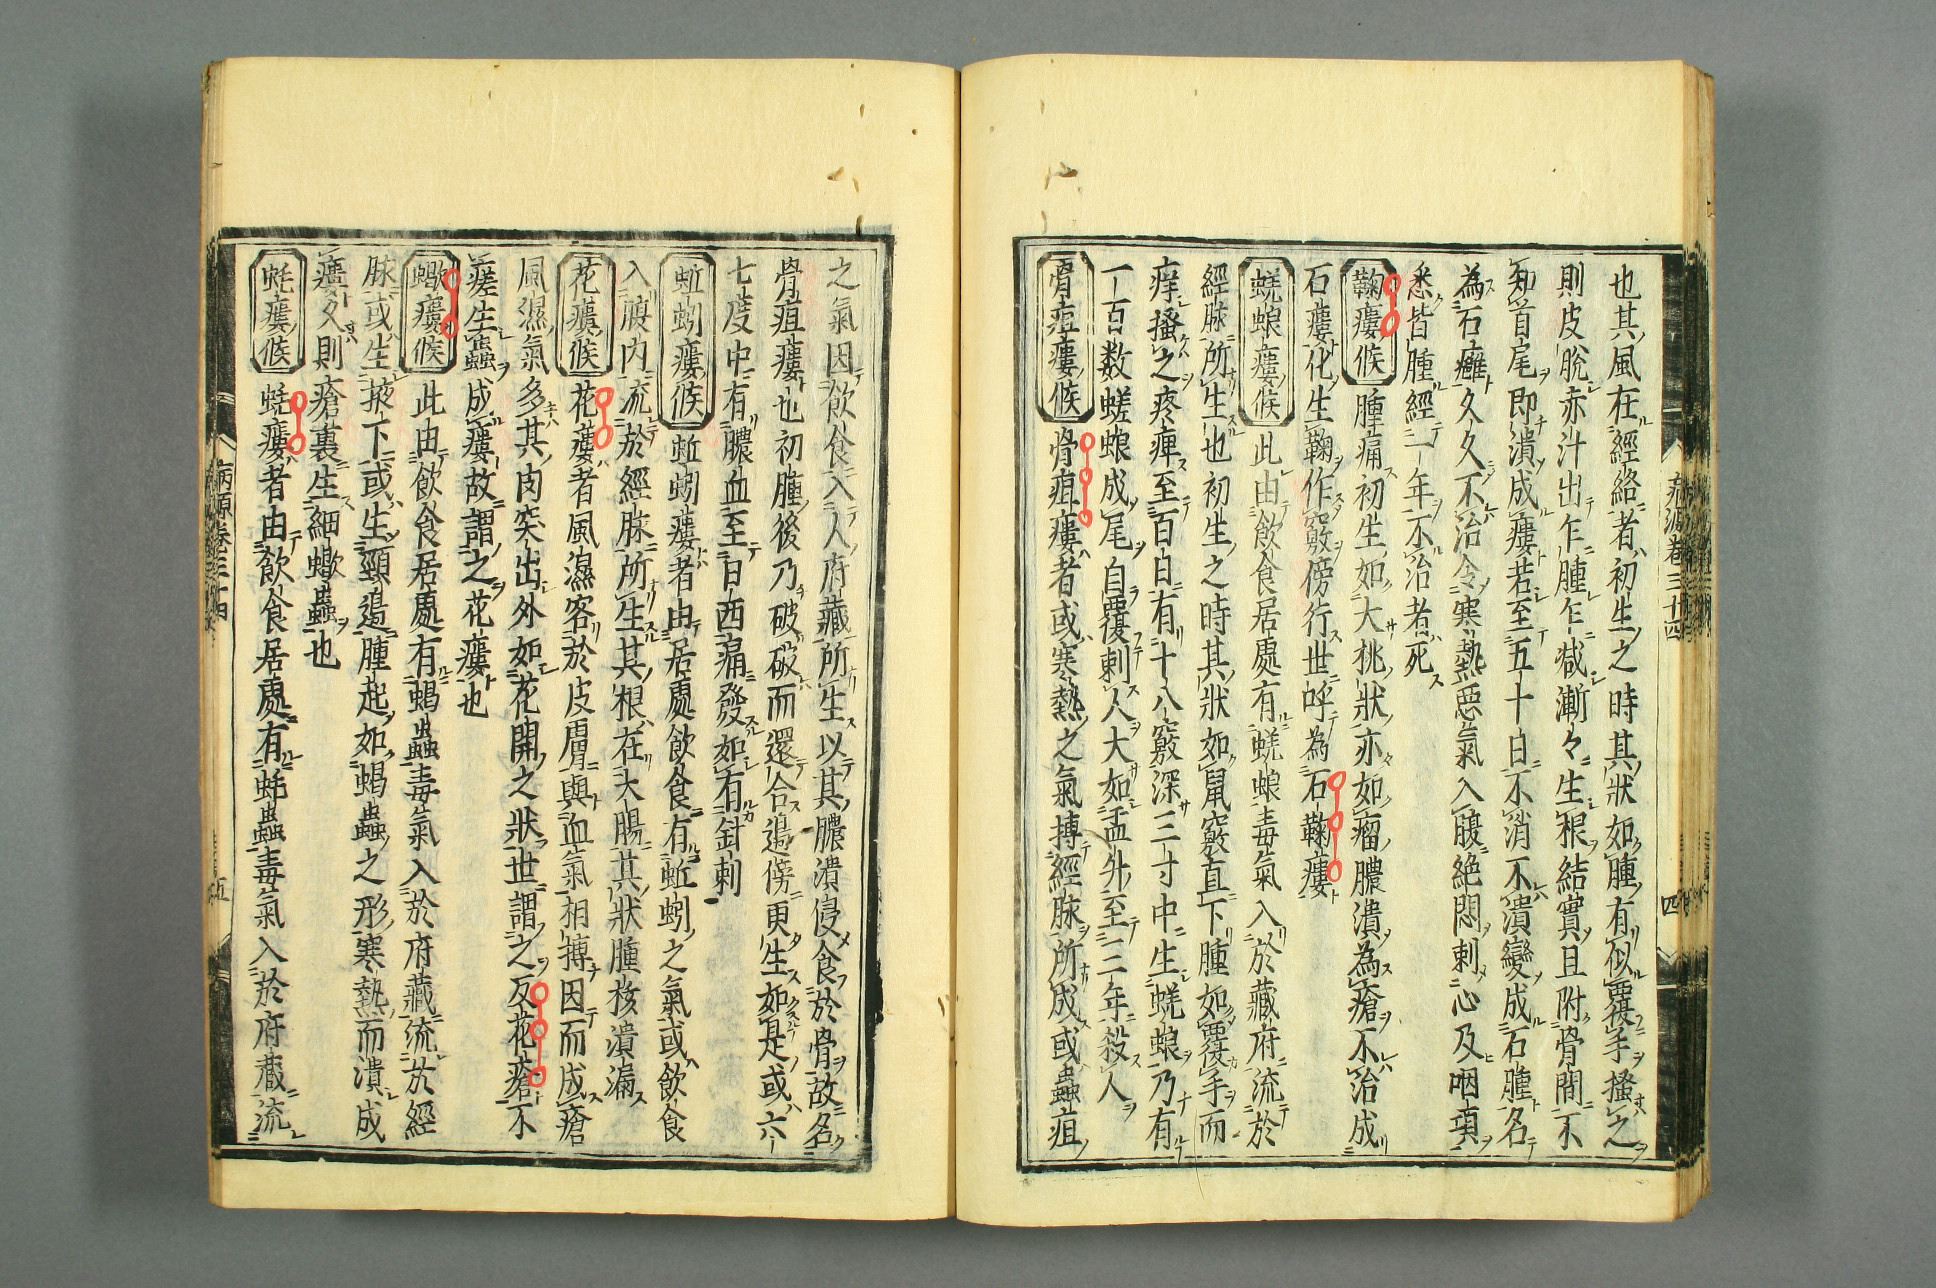 也其風在經絡者初生之時其狀如腫有似覆手搔之
則皮脫赤汁出乍腫乍減漸々生根結實且附骨間不
知首尾即潰成瘻若至五十日不消不潰變成石腫名
為石癰久久不治令寒熱惡氣入腹絶悶刺心及咽項
悉皆腫經一年不治者死
鞠瘻候 腫痛初生如大桃狀亦如瘤膿潰為瘡不治成
石瘻化生鞠作竅傍行世呼為石鞠瘻
蜣蜋瘻候 此由飲食居處有蜣蜋毒氣入於藏府流於
經脉所生也初生之時其狀如鼠竅直下腫如覆手而
痒搔之疼痺至百日有十八竅深三寸中生蜣蜋乃有
一百数蜣蜋成尾自覆刺人大如盂升至三年殺人
骨疽瘻候 骨疽瘻者或寒熱之氣搏經脉所成或蟲疽
病源卷三十四
四
之氣因飲食入人府藏所生以其膿潰侵食於骨故名
骨疽瘻也初腫後乃破破而還合邊傍更生如是或六
七度中有膿血至日西痛發如有針刺
蚯蚓瘻候 蚯蚓瘻者由居處飲食有蚯蚓之氣或飲食
入腹内流於經脉所生其根在大腸其狀腫核潰漏
花瘻候 花瘻者風濕客於皮膚與血氣相搏因而成瘡
風濕氣多其肉突出外如花開之狀世謂之反花瘡不
瘥生蟲成瘻故謂之花瘻也
蝎瘻候 此由飲食居處有蝎蟲毒氣入於府藏流於經
脉或生掖下或生頸邊腫起如蝎蟲之形寒熱而潰成
瘻久則瘡裏生細蝎蟲也
蚝瘻候 蚝瘻者由飲食居處有蚝蟲毒氣入於府藏流
病源卷三十四
五